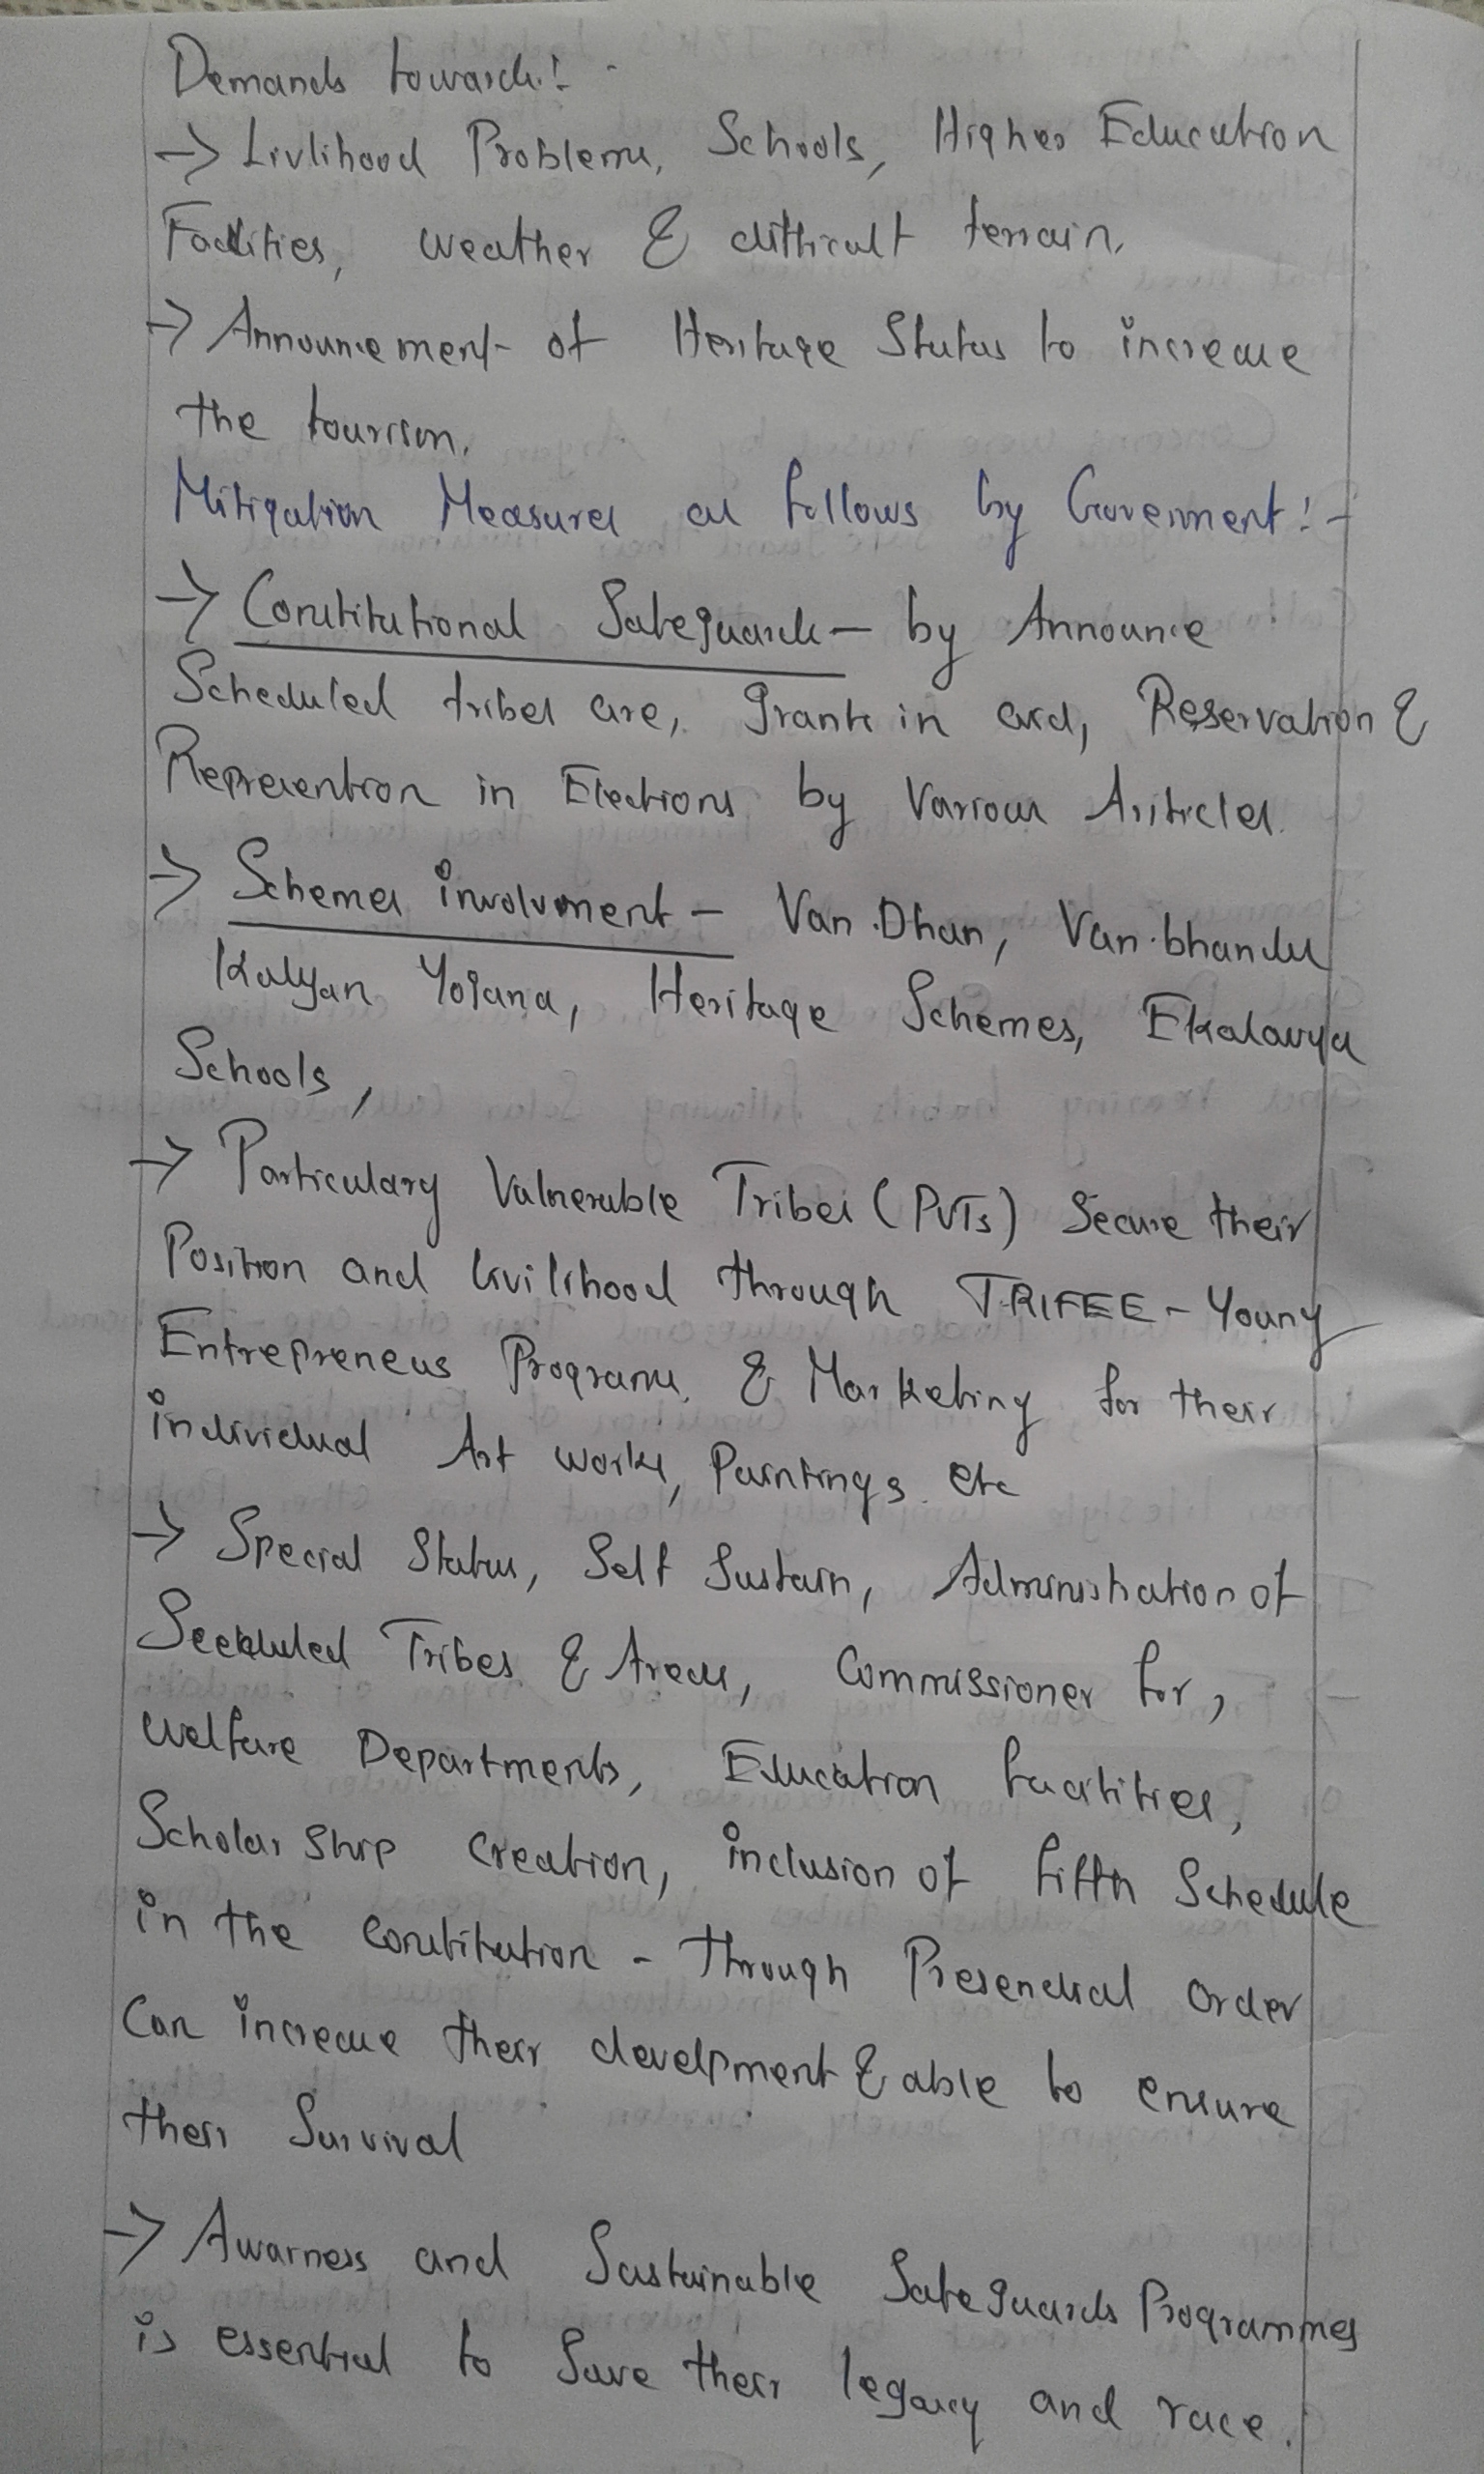 Demands towards:-
→ Livlihood Problems, Schools, Higher Education
Facilities, weather & difficult terrain.
→ Announcement of Heritage Status to increase
the tourism.
Mitigation Measures as follows by Government:-
→ Constitutional Safeguards - by Announce
Scheduled tribes are, Grants in aid, Reservation &
Represention in Elections by Various Articles.
→ Schemes involvment - Van Dhan, Van bhandu
Kalyan Yojana, Heritage Schemes, Ekalavya
Schools,
→ Particulary Vulnerable Tribes (PVTs) Secure their
Position and livilihood through TRIFEE - Young
Entrepreneus Programs & Marketing for their
individual Art works, Paintings etc
→ Special Status, Self Sustain, Administration of
Seeduled Tribes & Areas, Commissioner for,
welfare Departments, Education facilities,
Scholarship creation, inclusion of fifth Schedule
in the constitution - through Presendial order
Can increase their develpment & able to ensure
their Survival
→ Awarness and Sustainable Safeguards Programmes
is essential to Save their legacy and race.